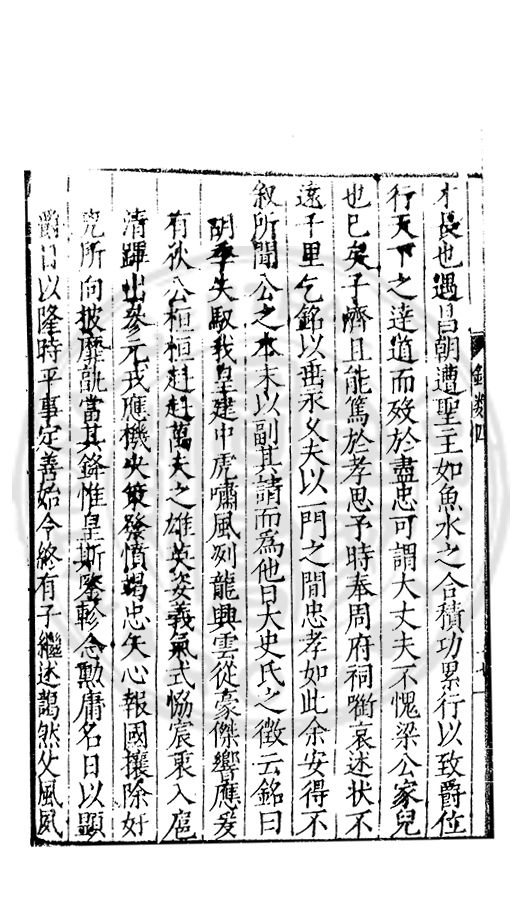 才長也遇昌朝遭聖王如魚水之合積功累行以致爵位
行天下之達道而歿於盡忠可謂大丈夫不愧梁公家兒
也已矣子濟且能篤於孝思予時奉周府祠衘哀述状不
遠千里乞銘以畱永乂夫以一門之間忠孝如此余安得不
叙所聞公之本末以副其請而爲他日大史氏之徵云銘曰
胡季失馭我皇建中虎嘯風冽龍興雲從豪傑響應爰
有狄公桓桓赳赳萬夫之雄英姿義氣式恊宸衷入扈
清蹕出參元戎應機决策發憤竭忠矢心報國攘除奸
宄所向披靡孰當其鋒惟皇斯鑒軫念勲庸名日以顯
爵日以隆時平事定善始令終有子繼述藹然父風夙
銘類四